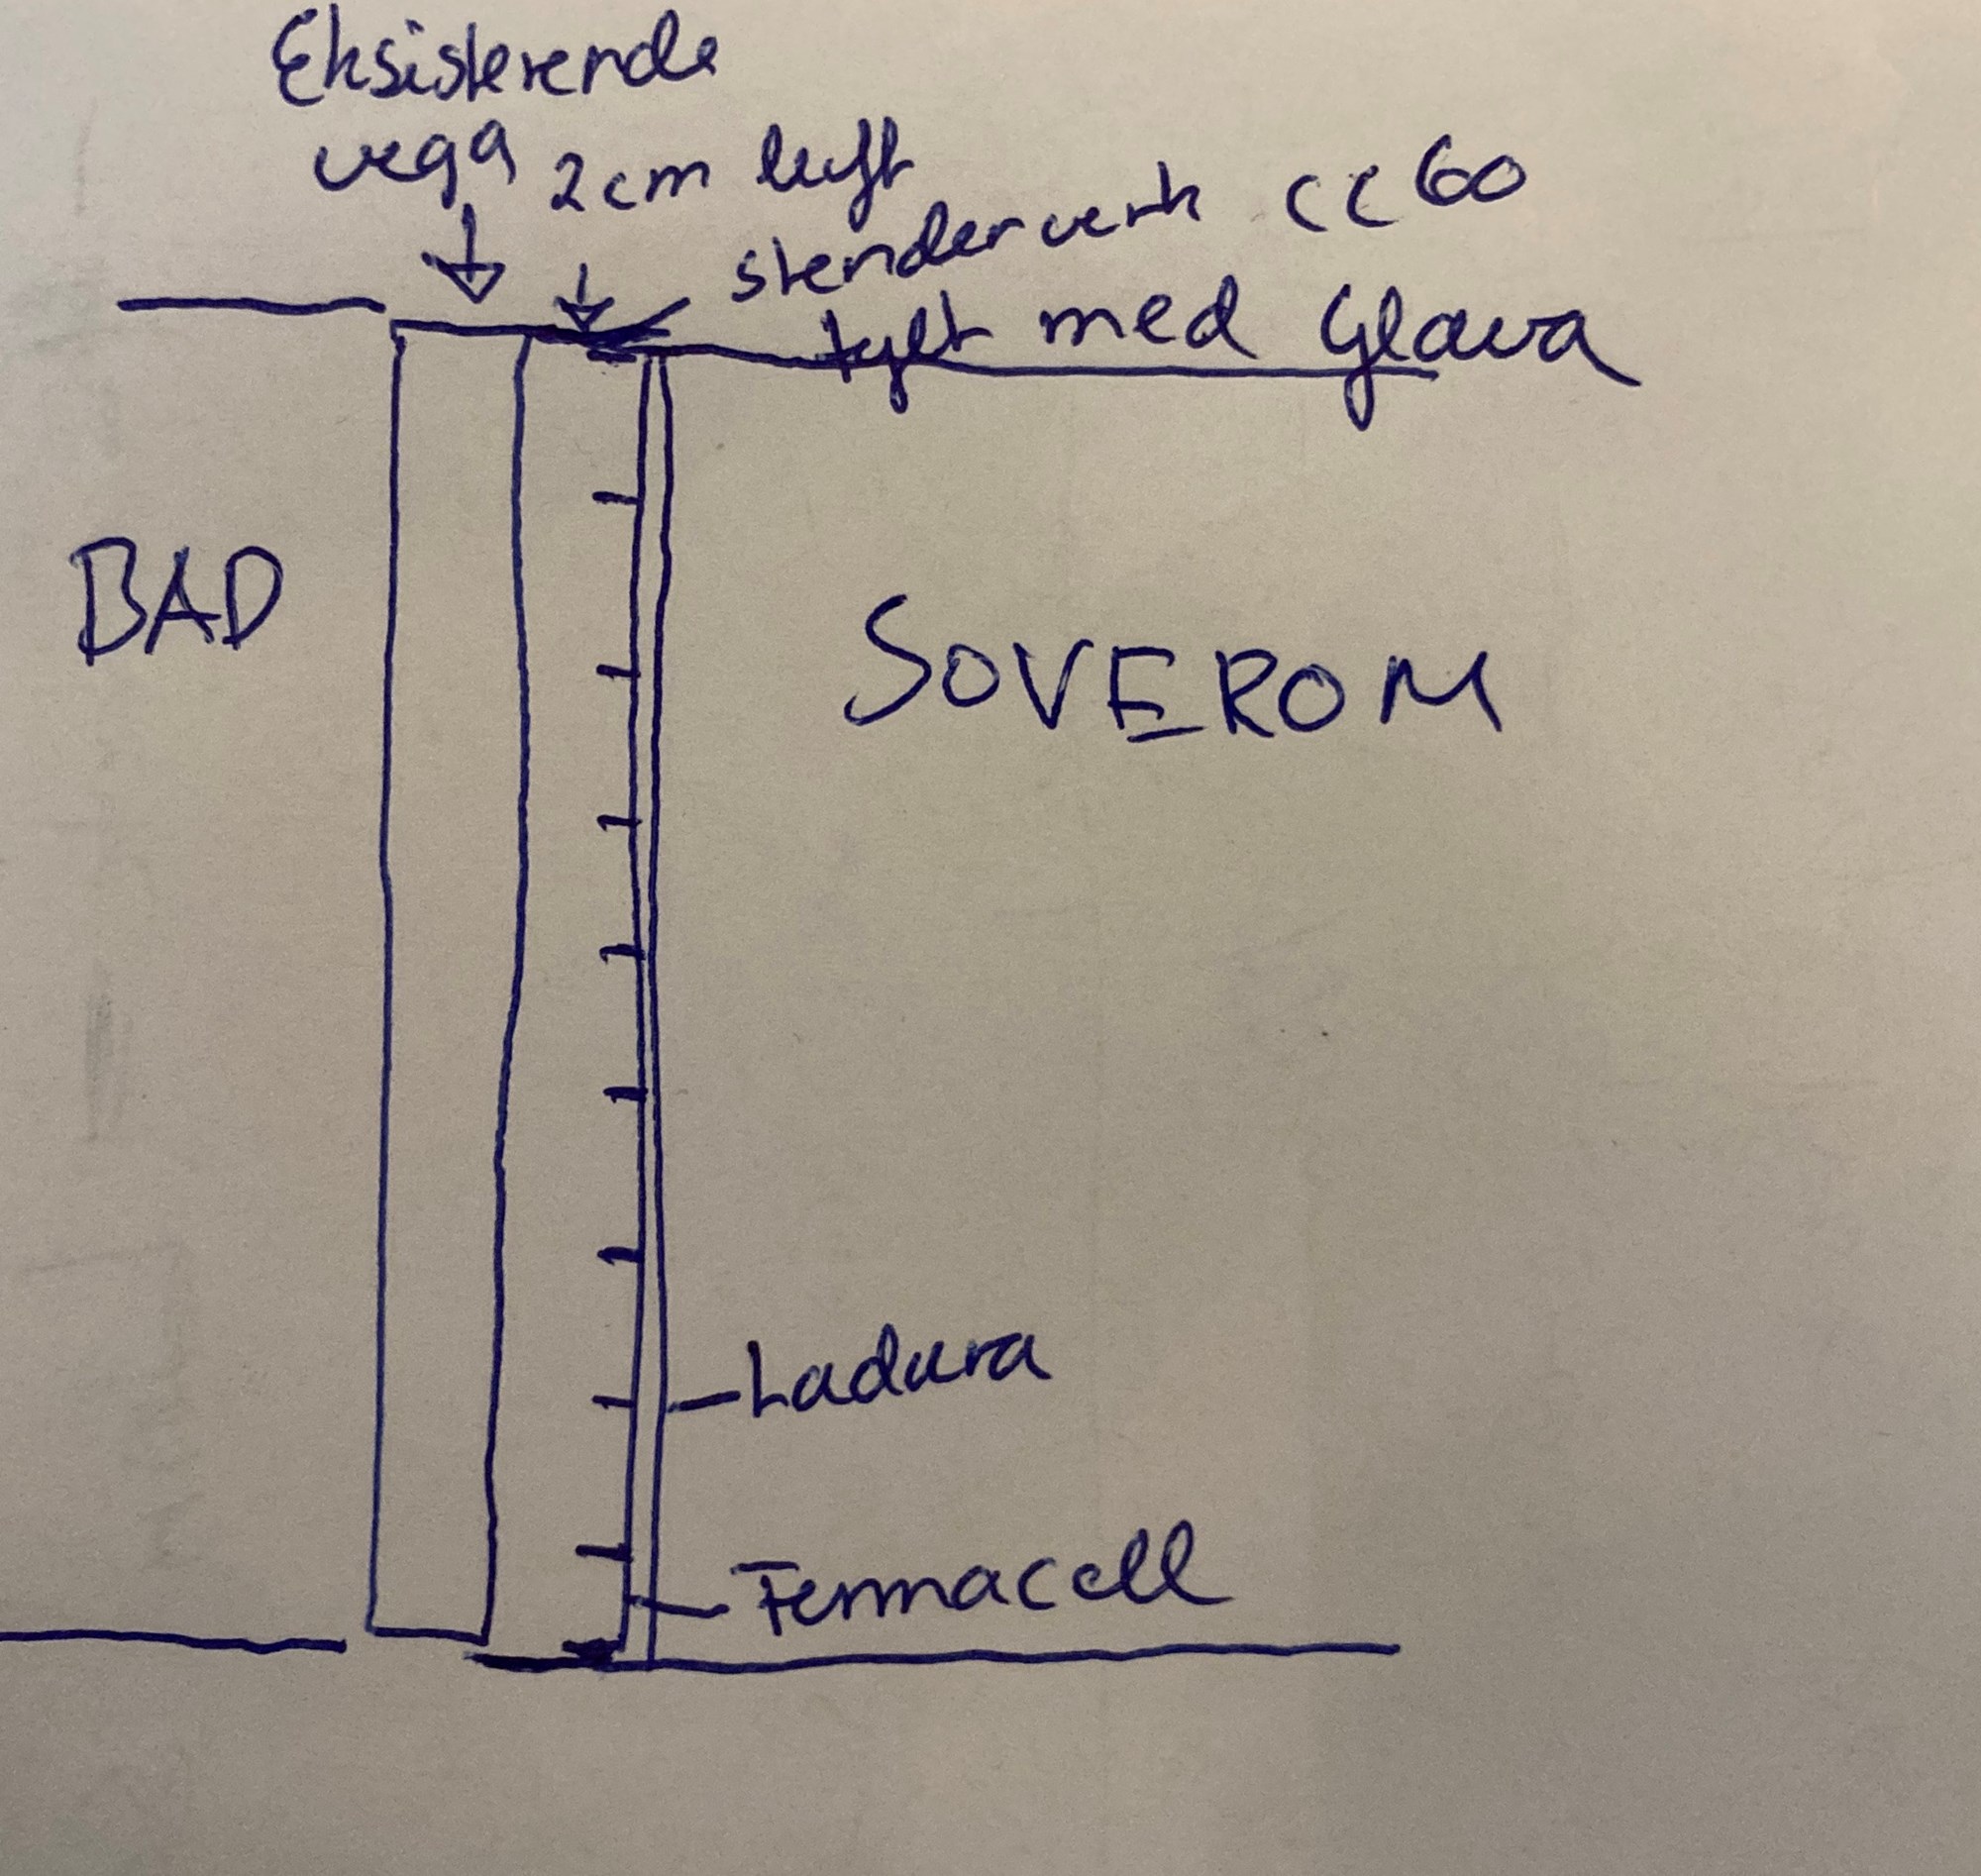 Eksisterende
vegg 2cm luft
stenderverk cc 60
fylt med Glava
BAD
SOVEROM
Ladura
Fermacell